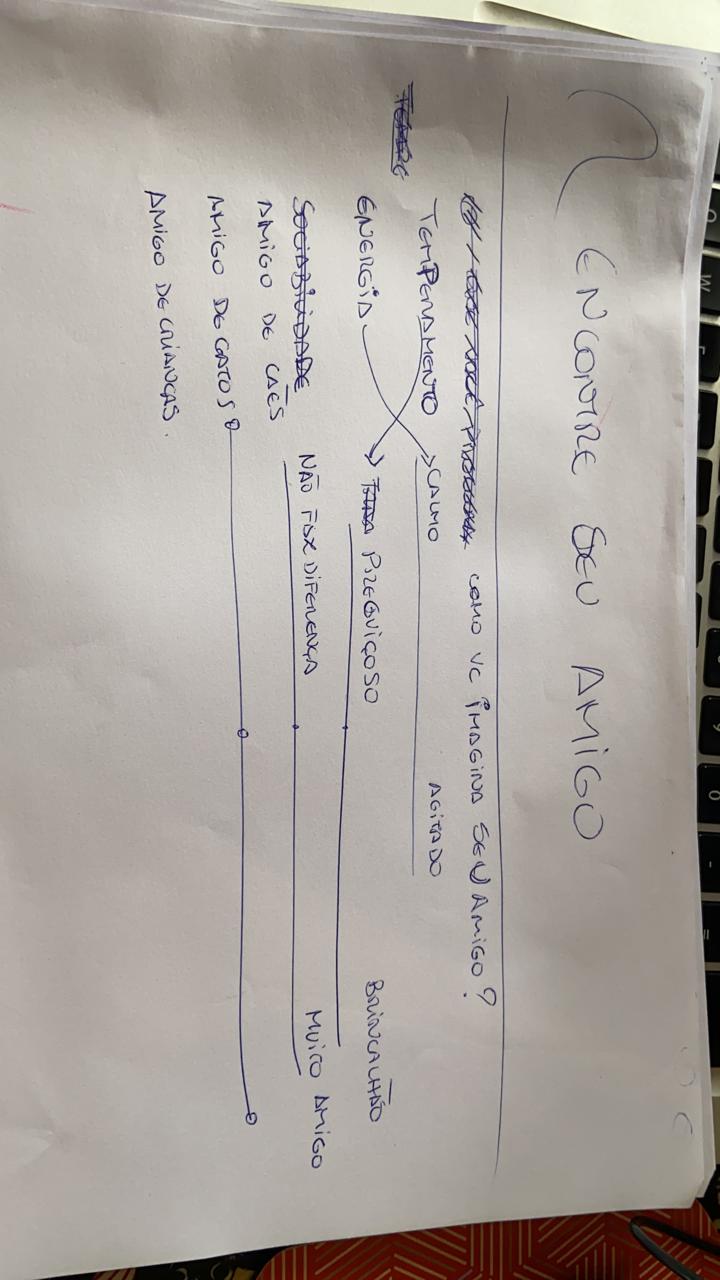 ENCONTRE SEU AMIGO
COMO VC IMAGINA SEU AMIGO?
TEMPERAMENTO CALMO AGITADO
ENERGIA PREGUIÇOSO BRINCALHÃO
SOCIABILIDADE NÃO FAX DIFERENÇA MUITO AMIGO
AMIGO DE CÃES
AMIGO DE GATOS
AMIGO DE CRIANÇAS.